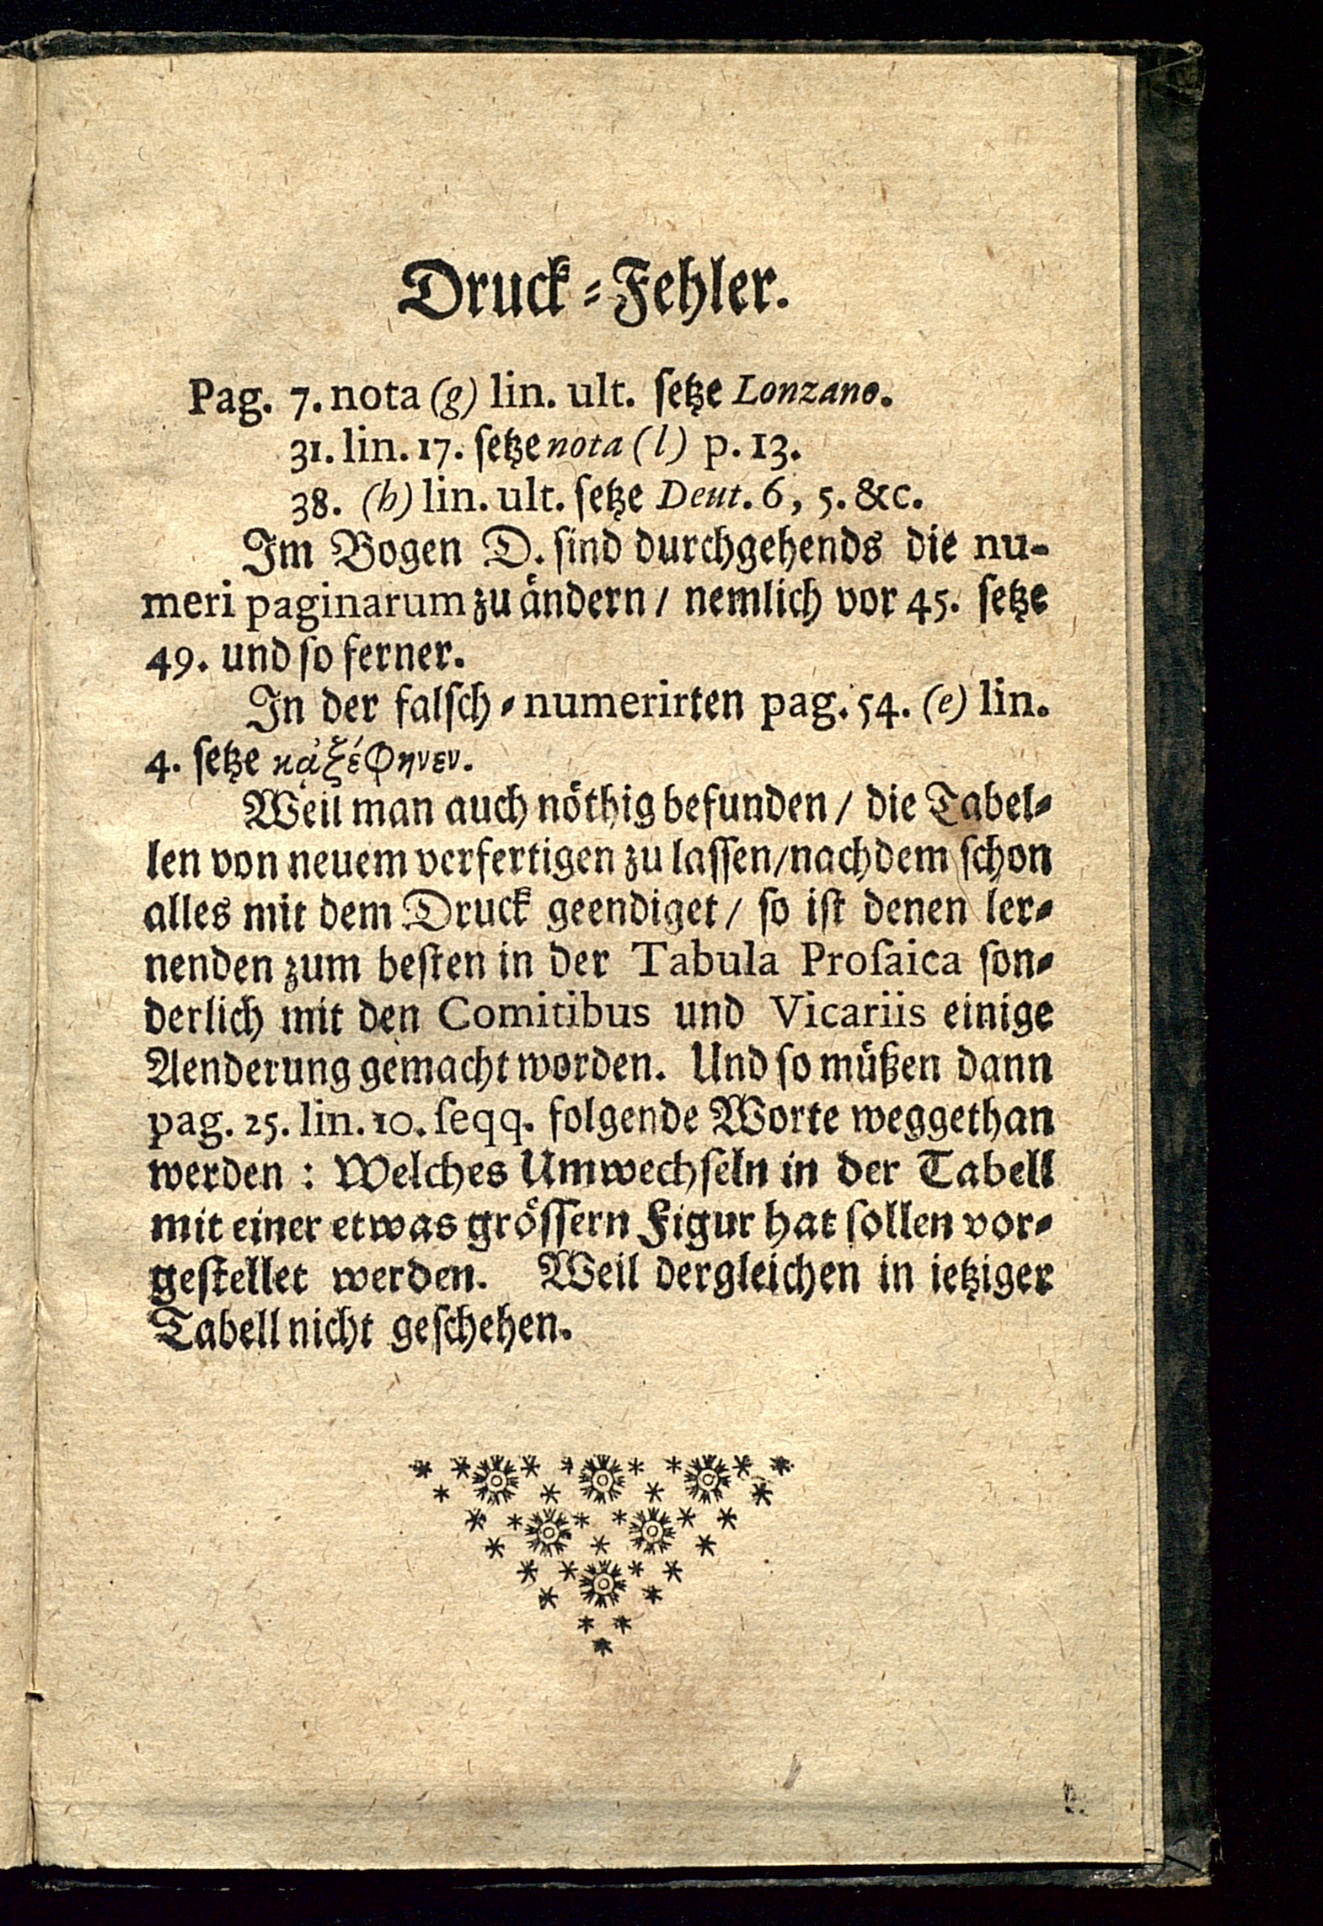 Druck-Fehler.
Pag. 7. nota (g) lin. ult. setze Lonzano.
31. lin. 17. setze nota (l) p. 13.
38. (h) lin. ult. setze Deut. 6, 5. &c.
Im Bogen D. sind durchgehends die nu-
meri paginarum zu ändern / nemlich vor 45. setze
49. und so ferner.
In der falsch-numerirten pag. 54. (e) lin.
4. setze κᾀξέφηνεν.
Weil man auch nöthig befunden / die Tabel-
len von neuem verfertigen zu lassen / nachdem schon
alles mit dem Druck geendiget / so ist denen ler-
nenden zum besten in der Tabula Proſaica son-
derlich mit den Comitibus und Vicariis einige
Aenderung gemacht worden. Und so müßen dann
pag. 25. lin. 10. ſeqq. folgende Worte weggethan
werden : Welches Umwechseln in der Tabell
mit einer etwas grössern Figur hat sollen vor-
gestellet werden. Weil dergleichen in ietziger
Tabell nicht geschehen.